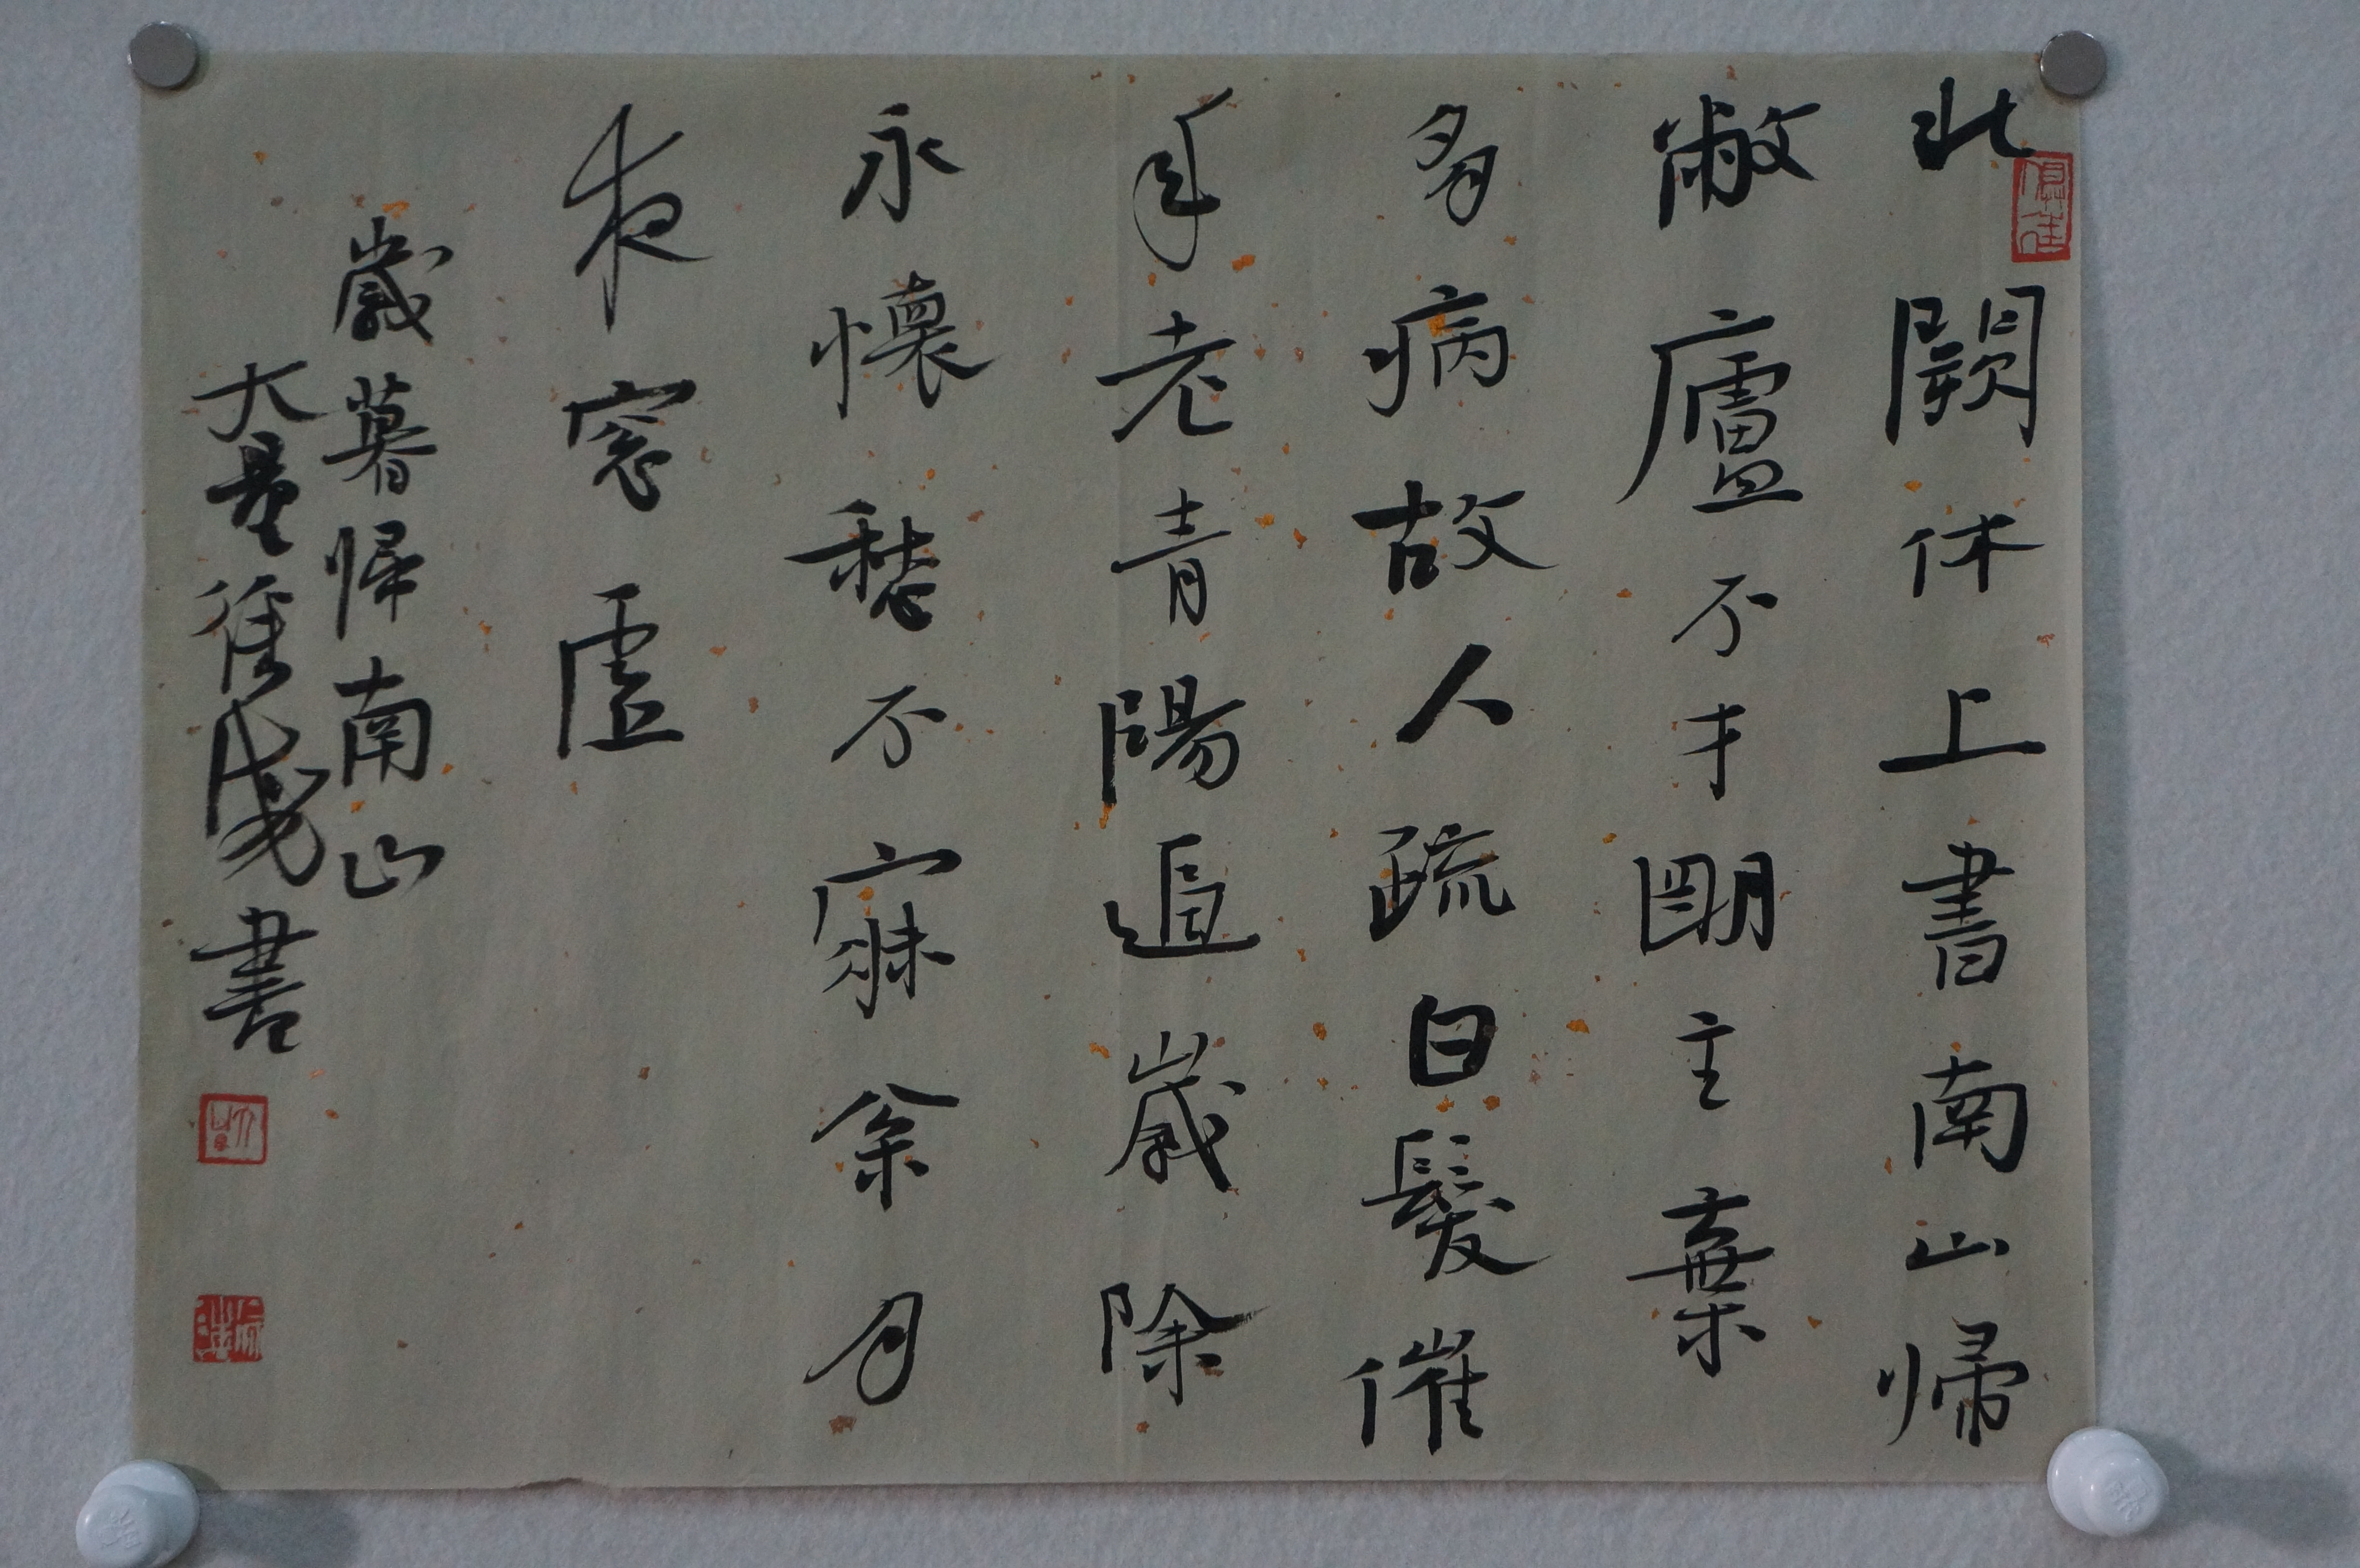 北闕休上書南山歸
敝廬不才明主棄
多病故人疏白髮催
年老青陽逼歲除
永懷愁不寐松月
夜窓虛
歲暮歸南山
大量書